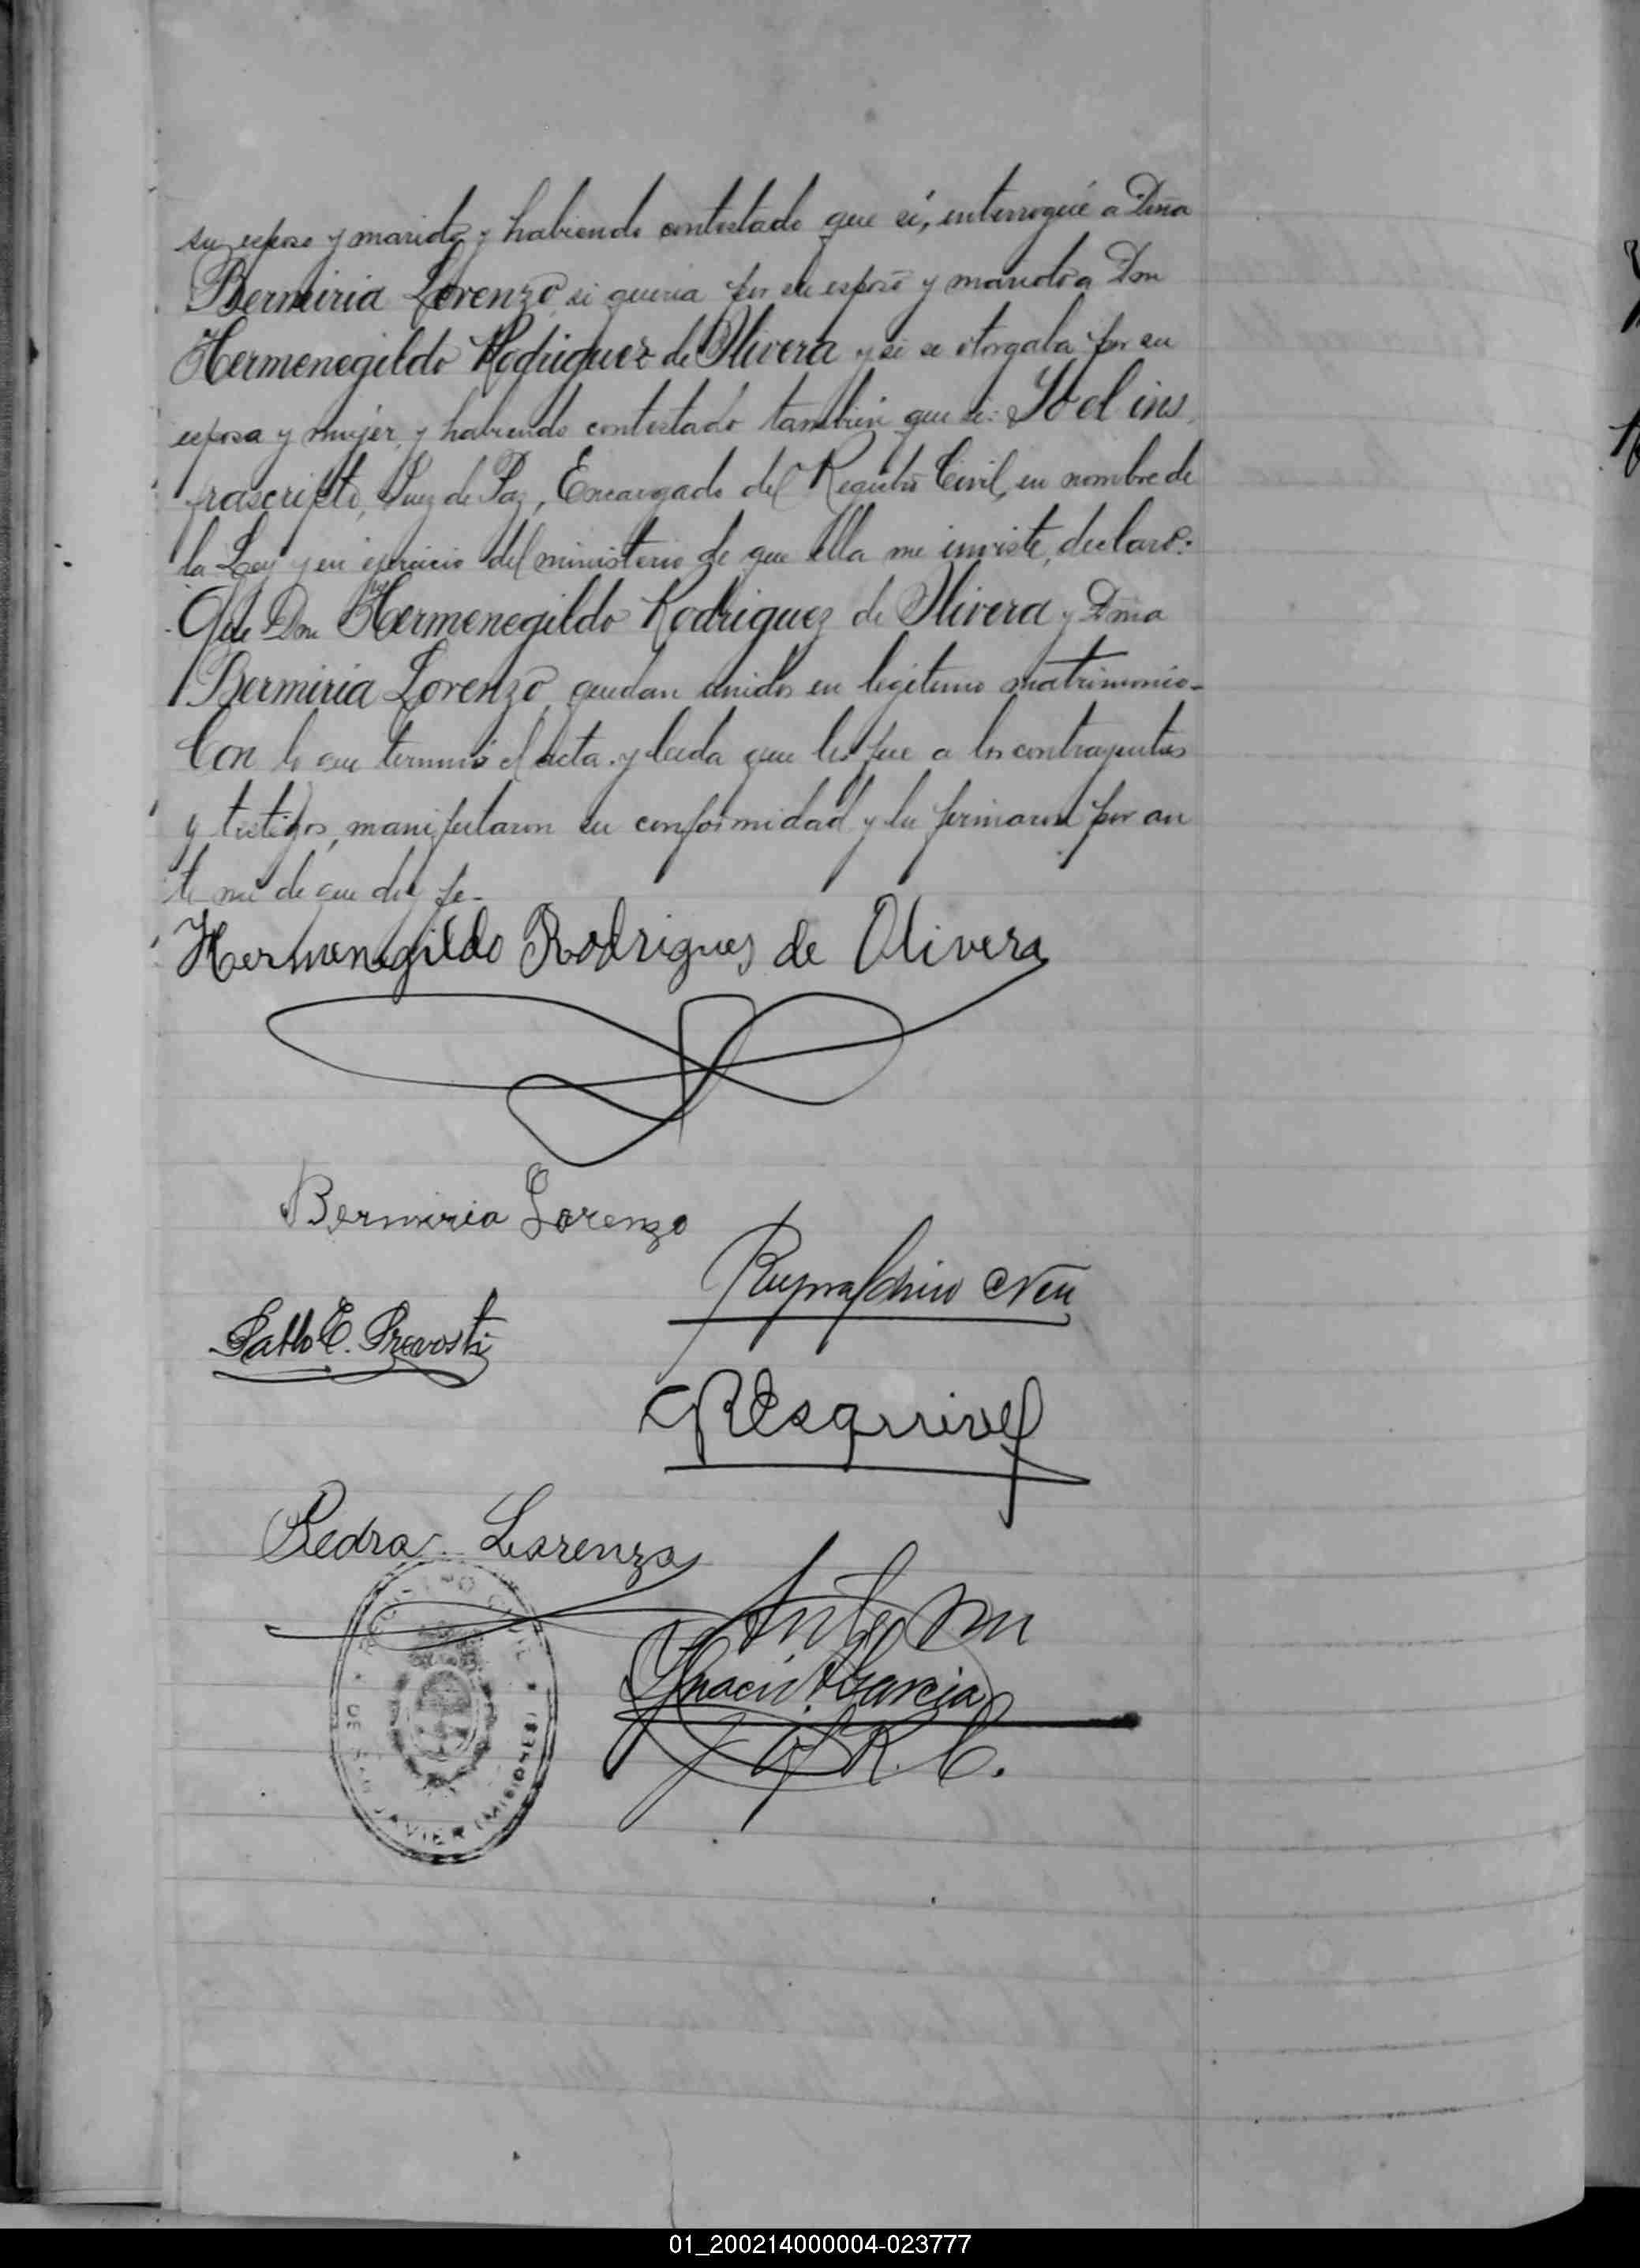 su esposo y marido y habiendo contestado que sí, interrogué a Doña
Bermiria Lorenzo, si queria por su esposo y marido a Don
Hermenegildo Rodriguez de Olivera y si se otorgaba por su
esposa y mujer, y habiendo contestado tambien que si: Yo el ins
frascripto, Juez de Paz, Encargado del Registro Civil, en nombre de
la Ley y en ejercicio del ministerio de que ella me inviste, declaro:
Que Don Hermenegildo Rodriguez de Olivera y Doña
Bermiria Lorenzo, quedan unidos en legitimo matrimonio-
Con lo que terminó el acta. y leida que les fue a los contrayentes
y testigos, manifestaron su conformidad y la firmaron por an
te mi de que doy fe-
Hermenegildo Rodrigues de Olivera
Bermiria Lorenzo
Pablo E. Prevosti
Esquivel
Pedro Lorenzo
Ante mi
Ignacio Garcia
J. R. C.
REGISTRO CIVIL
DE SAN JAVIER (MISIONES)
01_200214000004-023777